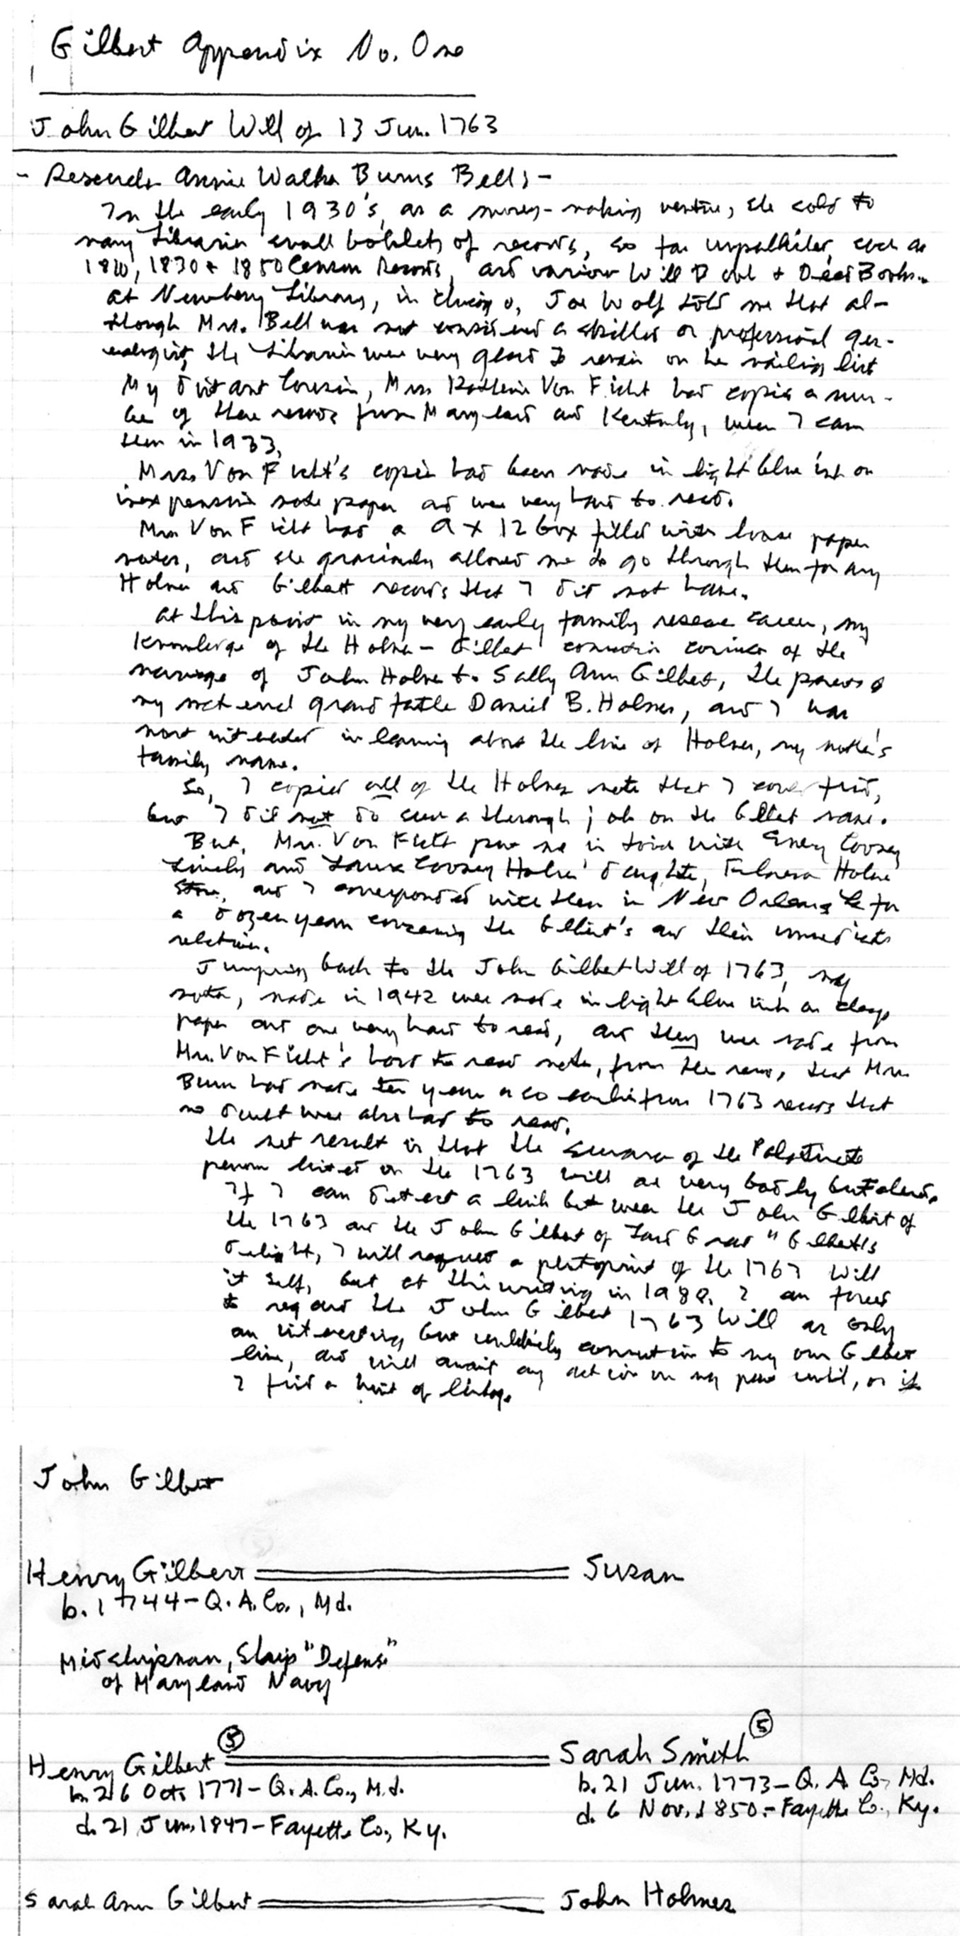 Gilbert Appendix No. One
John Gilbert Will of 13 Jun. 1763
- Annie Walker Burns Bell; -
In the early 1930's, as a money-making venture, she sold to
many Libraries small booklets of records, so far unpublished, such as
1810, 1830 + 1850 Census Records, and various Will Book + Deed Books.
At Newberry Library, in Chicago, Joe Wolf told me that al-
though Mrs. Bell was not considered a skilled or professional gen-
ealogist, the Libraries were very glad to remain on her mailing list
My distant Cousin, Mrs. Von Ficht had copied a num-
ber of these records from Maryland and Kentucky, when I saw
them in 1933.
Mrs. Von Ficht's copies had been made in light blue ink on
inexpensive note paper and were very hard to read.
Mrs. Von Ficht had a 9 x 12 box filled with loose paper
notes, and she graciously allowed me to go through them for any
Holmes and Gilbert records that I did not have.
At this point in my very early family research career, my
knowledge of the Holmes - Gilbert connection of the
marriage of John Holmes to Sally Ann Gilbert, the parents of
my maternal grand father Daniel B. Holmes, and I was
most interested in learning about the line of Holmes, my mother's
family name.
So, I copied all of the Holmes notes that I could find,
but I did not do such a thorough job on the Gilbert name.
But, Mrs. Von Ficht put me in touch with Emery Coovey
Lively and Laura Coovey Holmes' daughter, Holmes
and I corresponded with them in New Orleans for
a dozen years concerning the Gilbert's and their immediate
relatives.
Jumping back to the John Gilbert Will of 1763, my
notes, made in 1942 were made in light blue ink on cheap
paper and are very hard to read, and they were made from
Mrs. Von Ficht's hard to read notes, from the records, that Mrs.
Burns had made ten years or so earlier from 1763 records that
no doubt were also hard to read.
The net result is that the surnames of the Palatinate
persons listed on the 1763 will are very badly butchered.
If I can detect a link between the John Gilbert of
the 1763 and the John Gilbert of Land Grant "Gilbert's
Delight", I will request a photoprint of the 1763 Will
it self, but at this writing in 1988, I am forced
to regard the John Gilbert 1763 Will as only
an interesting but unlikely connection to my own Gilbert
line, and will await any action on my part until, or if
I find a hint of linkage.
John Gilbert
Henry Gilbert Susan
b. 1744 - Q. A. Co., Md.
Midshipman, Ship "Defense"
of Maryland Navy
Henry Gilbert (5) Sarah Smith (5)
b. 26 Oct. 1771 - Q. A. Co., Md. b. 21 Jun. 1773 - Q. A. Co., Md.
d. 21 Jun. 1847 - Fayette Co., Ky. d. 6 Nov. 1850 - Fayette Co., Ky.
Sarah Ann Gilbert John Holmes